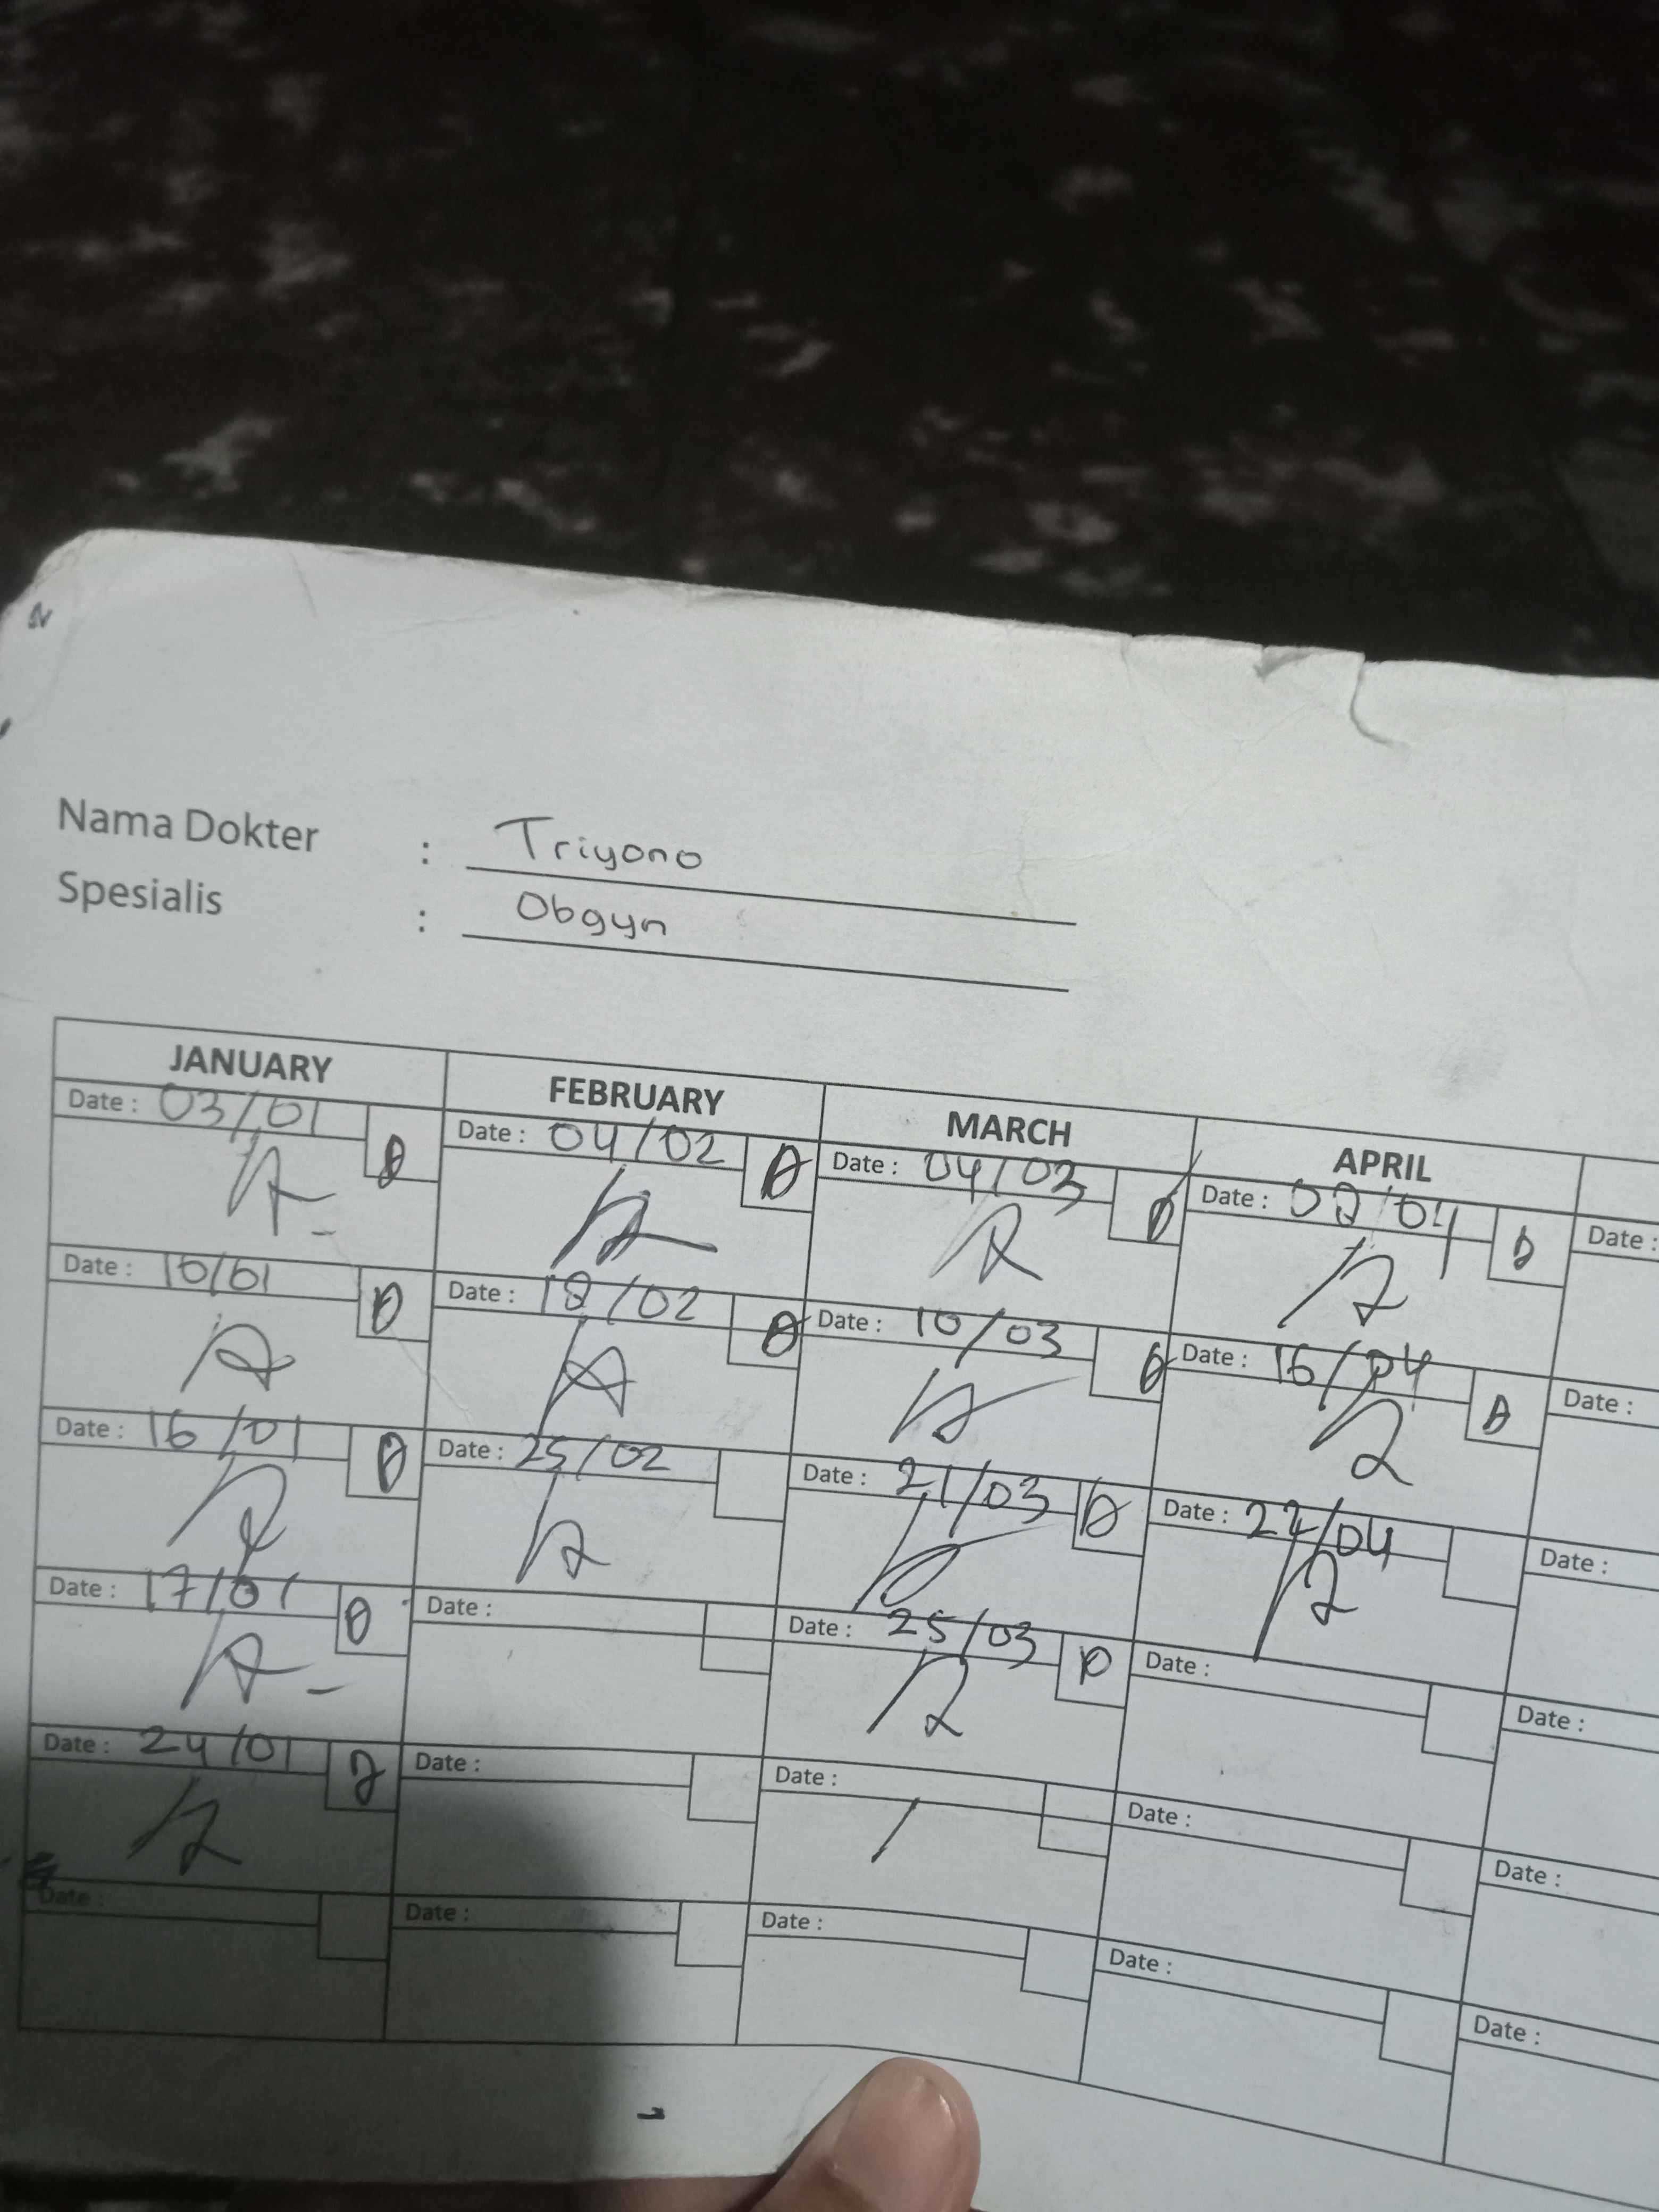 Nama Dokter : Triyono
Spesialis : Obgyn
JANUARY FEBRUARY MARCH APRIL
Date : 03/01 Date : 04/02 Date : 04/03 Date : 02/04 Date :
Date : 10/01 Date : 18/02 Date : 10/03 Date : 16/04 Date :
Date : 16/01 Date : 25/02 Date : 21/03 Date : 04 Date :
Date : 17/01 Date : Date : 25/03 Date : Date :
Date : 24/01 Date : Date : Date : Date :
Date : Date : Date : Date : Date :